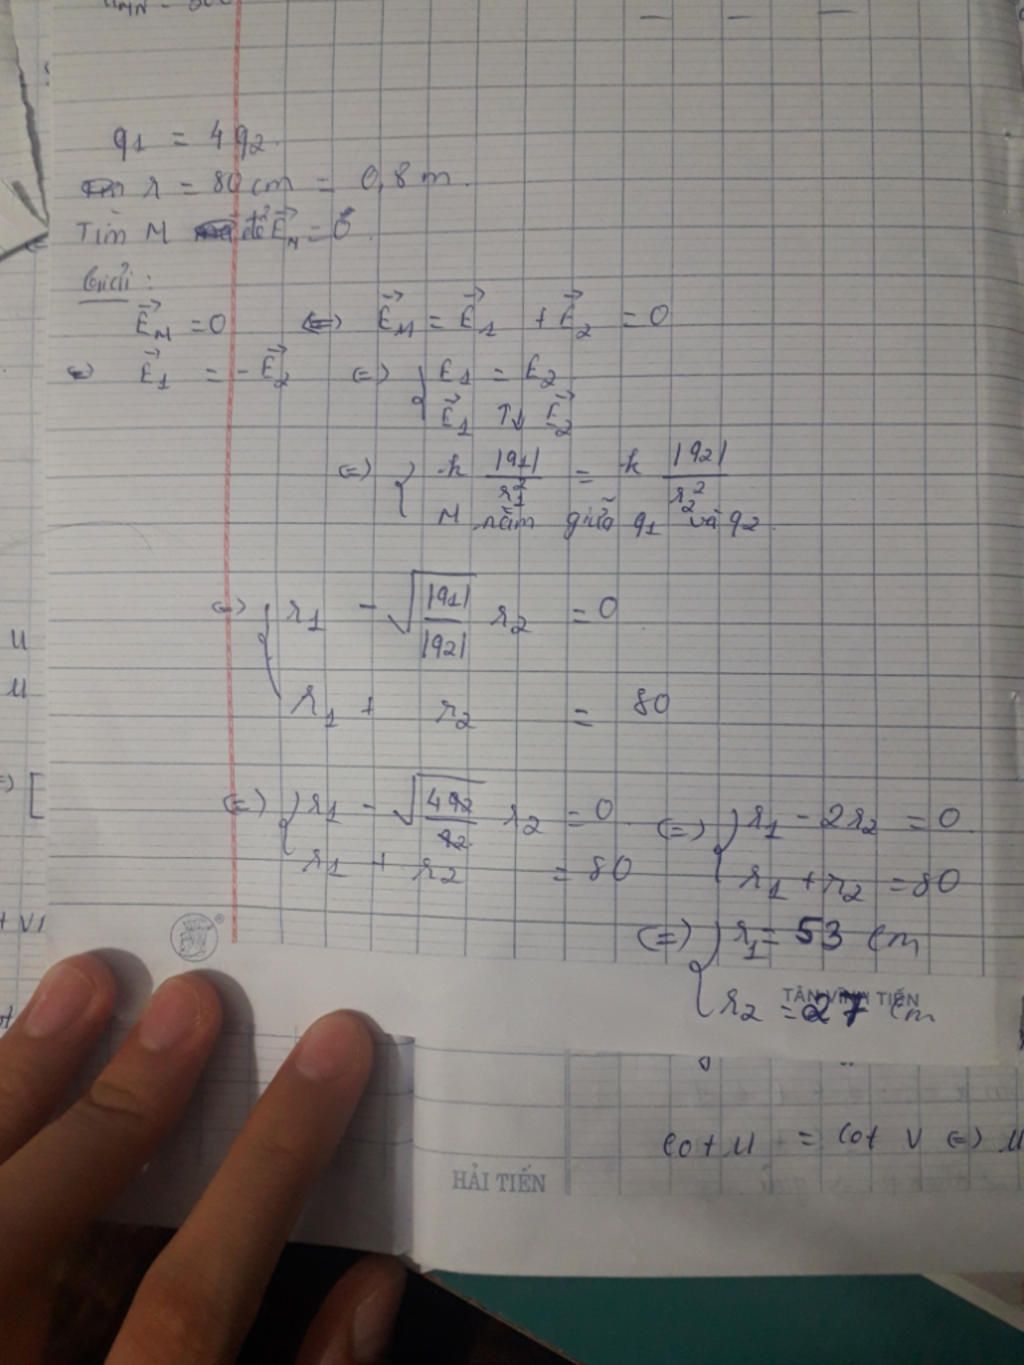 q1 = 4q2
r = 80 cm = 0,8 m
Tìm M để E⃗M = 0⃗
Giải :
E⃗M = 0 ⇔ E⃗M = E⃗1 + E⃗2 = 0
⇔ E⃗1 = - E⃗2 ⇔ { E1 = E2
E⃗1 ↑↓ E⃗2
⇔ { k |q1| / r1² = k |q2| / r2²
M nằm giữa q1 và q2
⇔ { r1 - √(|q1| / |q2|) r2 = 0
r1 + r2 = 80
⇔ { r1 - √(4q2 / q2) r2 = 0 ⇔ { r1 - 2r2 = 0
r1 + r2 = 80 r1 + r2 = 80
⇔ { r1 = 53 cm
TÂN VĨNH TIẾN
r2 = 27 cm
cot u = cot v ⇔ u
HẢI TIẾN